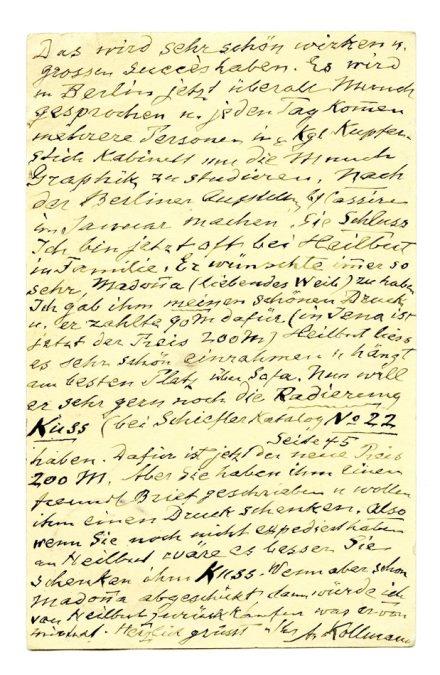 Das wird sehr schön wirken u.
grossen Succès haben. Es wird
in Berlin jetzt überall Munch
gesprochen u. jeden Tag kom̄en
mehrere Personen ins Kgl Kupfer-
stich Kabinett um die Munch
Graphik zu studieren. Nach
der Berliner Ausstellung bei Cassirer
im Januar machen Sie Schluss
Ich bin jetzt oft bei Heilbut
in Familie. Er wünschte im̄er so
sehr Madon̄a (liebendes Weib) zu haben
Ich gab ihm meinen schönen Druck
u. er zahlte 90 M dafür (in Jena ist
jetzt der Preis 200 M) Heilbut liess
es sehr schön einrahmen u hängt
am besten Platz über Sofa. Nun will
er sehr gern noch die Radierung
Kuss (bei Schiefler Katalog No 22
Seite 45
haben. Dafür ist jetzt der neue Preis
200 M. Aber Sie haben ihm einen
freundl Brief geschrieben u wollen
ihm einen Druck schenken. Also
wenn Sie noch nicht expediert haben
an Heilbut wäre es besser Sie
schenken ihm Kuss. Wenn aber schon
Madon̄a abgeschickt dann würde ich
von Heilbut zurück kaufen was er von
mir hat. Herzlich grüsst Ihr A. Kollmann